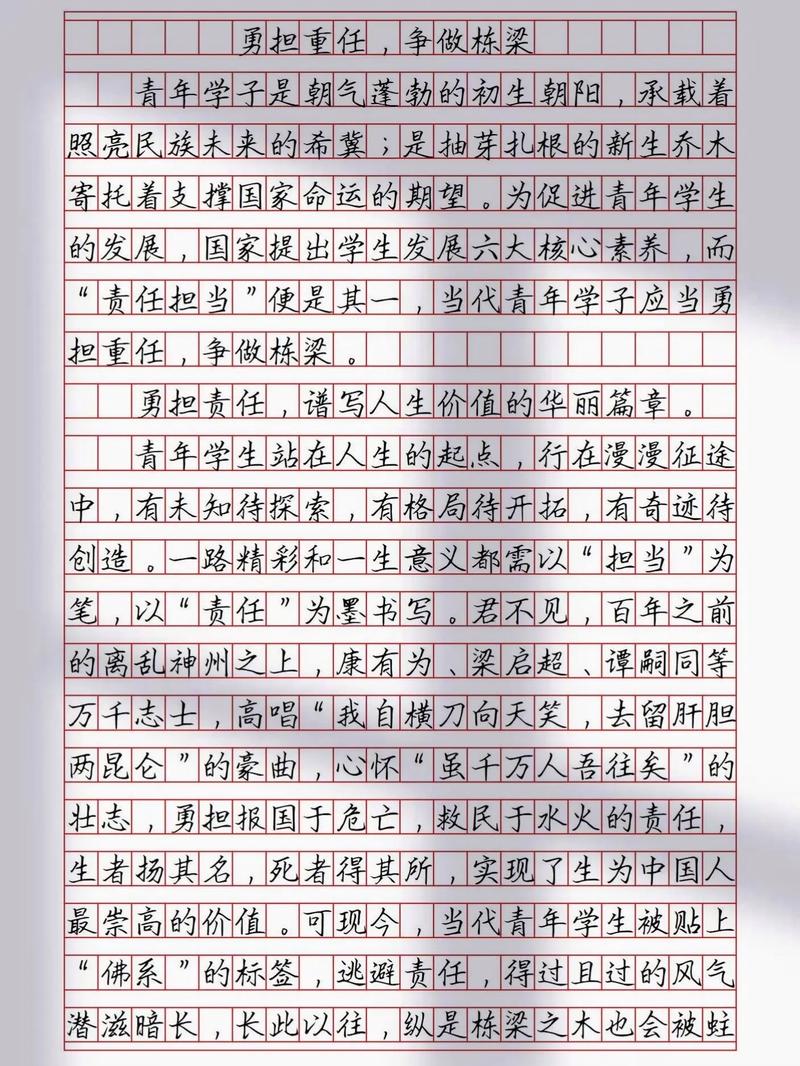 勇担重任，争做栋梁
青年学子是朝气蓬勃的初生朝阳，承载着
照亮民族未来的希冀；是抽芽扎根的新生乔木
寄托着支撑国家命运的期望。为促进青年学生
的发展，国家提出学生发展六大核心素养，而
“责任担当”便是其一，当代青年学子应当勇
担重任，争做栋梁。
勇担责任，谱写人生价值的华丽篇章。
青年学生站在人生的起点，行在漫漫征途
中，有未知待探索，有格局待开拓，有奇迹待
创造。一路精彩和一生意义都需以“担当”为
笔，以“责任”为墨书写。君不见，百年之前
的离乱神州之上，康有为、梁启超、谭嗣同等
万千志士，高唱“我自横刀向天笑，去留肝胆
两昆仑”的豪曲，心怀“虽千万人吾往矣”的
壮志，勇担报国于危亡，救民于水火的责任，
生者扬其名，死者得其所，实现了生为中国人
最崇高的价值。可现今，当代青年学生被贴上
“佛系”的标签，逃避责任，得过且过的风气
潜滋暗长，长此以往，纵是栋梁之木也会被蛀